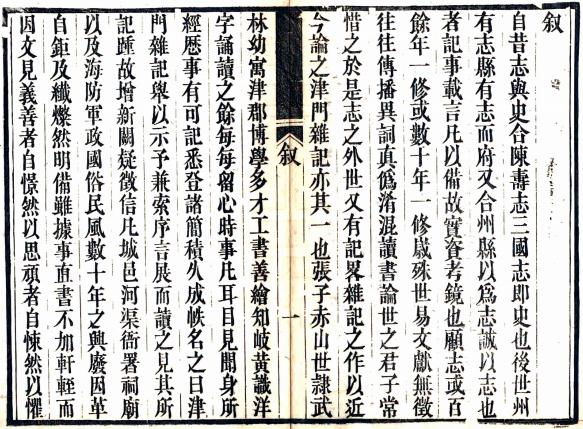 叙
自昔志與史合陳壽志三國志即史也後世州
有志縣有志而府又合州縣以爲志誠以志也
者記事載言凡以備故實資考鏡也顧志或百
餘年一修或數十年一修嵗殊世易文獻無徵
往往傳播異詞真僞淆混讀書論世之君子常
惜之於是志之外世又有記畧雜記之作以近
今論之津門雜記亦其一也張子赤山世隸武
叙
一
林幼寓津郡博學多才工書善繪知岐黄識洋
字誦讀之餘每每留心時事凡耳目見聞身所
經歴事有可記悉登諸簡積久成帙名之曰津
門雜記舉以示予兼索序言展而讀之見其所
記踵故增新闕疑徵信凡城邑河渠衙署祠廟
以及海防軍政國俗民風數十年之興廢因革
自鉅及纖燦然明備雖據事直書不加軒輊而
因文見義善者自憬然以思頑者自悚然以懼